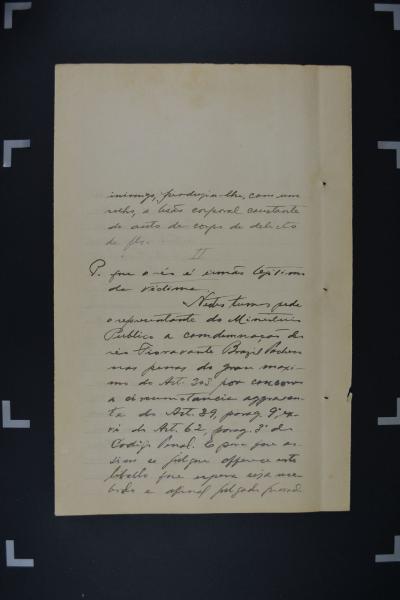 inimigo, produzio-lhe, com um
relho, a lesão corporal constante
do auto de corpo de delicto
de fls.
II
P. que o réo é irmão legitimo
da victima.
Nestes termos pede
o representante do Ministerio
Publico a condemnação do
réo Fioravante Brazil Pacheco
nas penas do grau maxi
mo do Art. 303 por concorrer
a circumstancia aggravan
te do Art. 39, parag. 9º, ex
vi do Art. 62, parag. 3º do
Codigo Penal. E para que as
sim se julgue offerece este
libello que espera seja rece
bido e afinal julgado